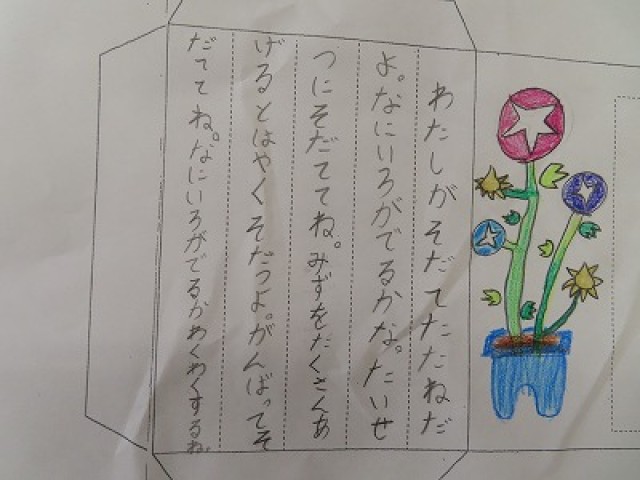 わたしがそだてたたねだ
よ。なにいろがでるかな。たいせ
つにそだててね。みずをたくさんあ
げるとはやくそだつよ。がんばってそ
だててね。なにいろがでるかわくわくするね。